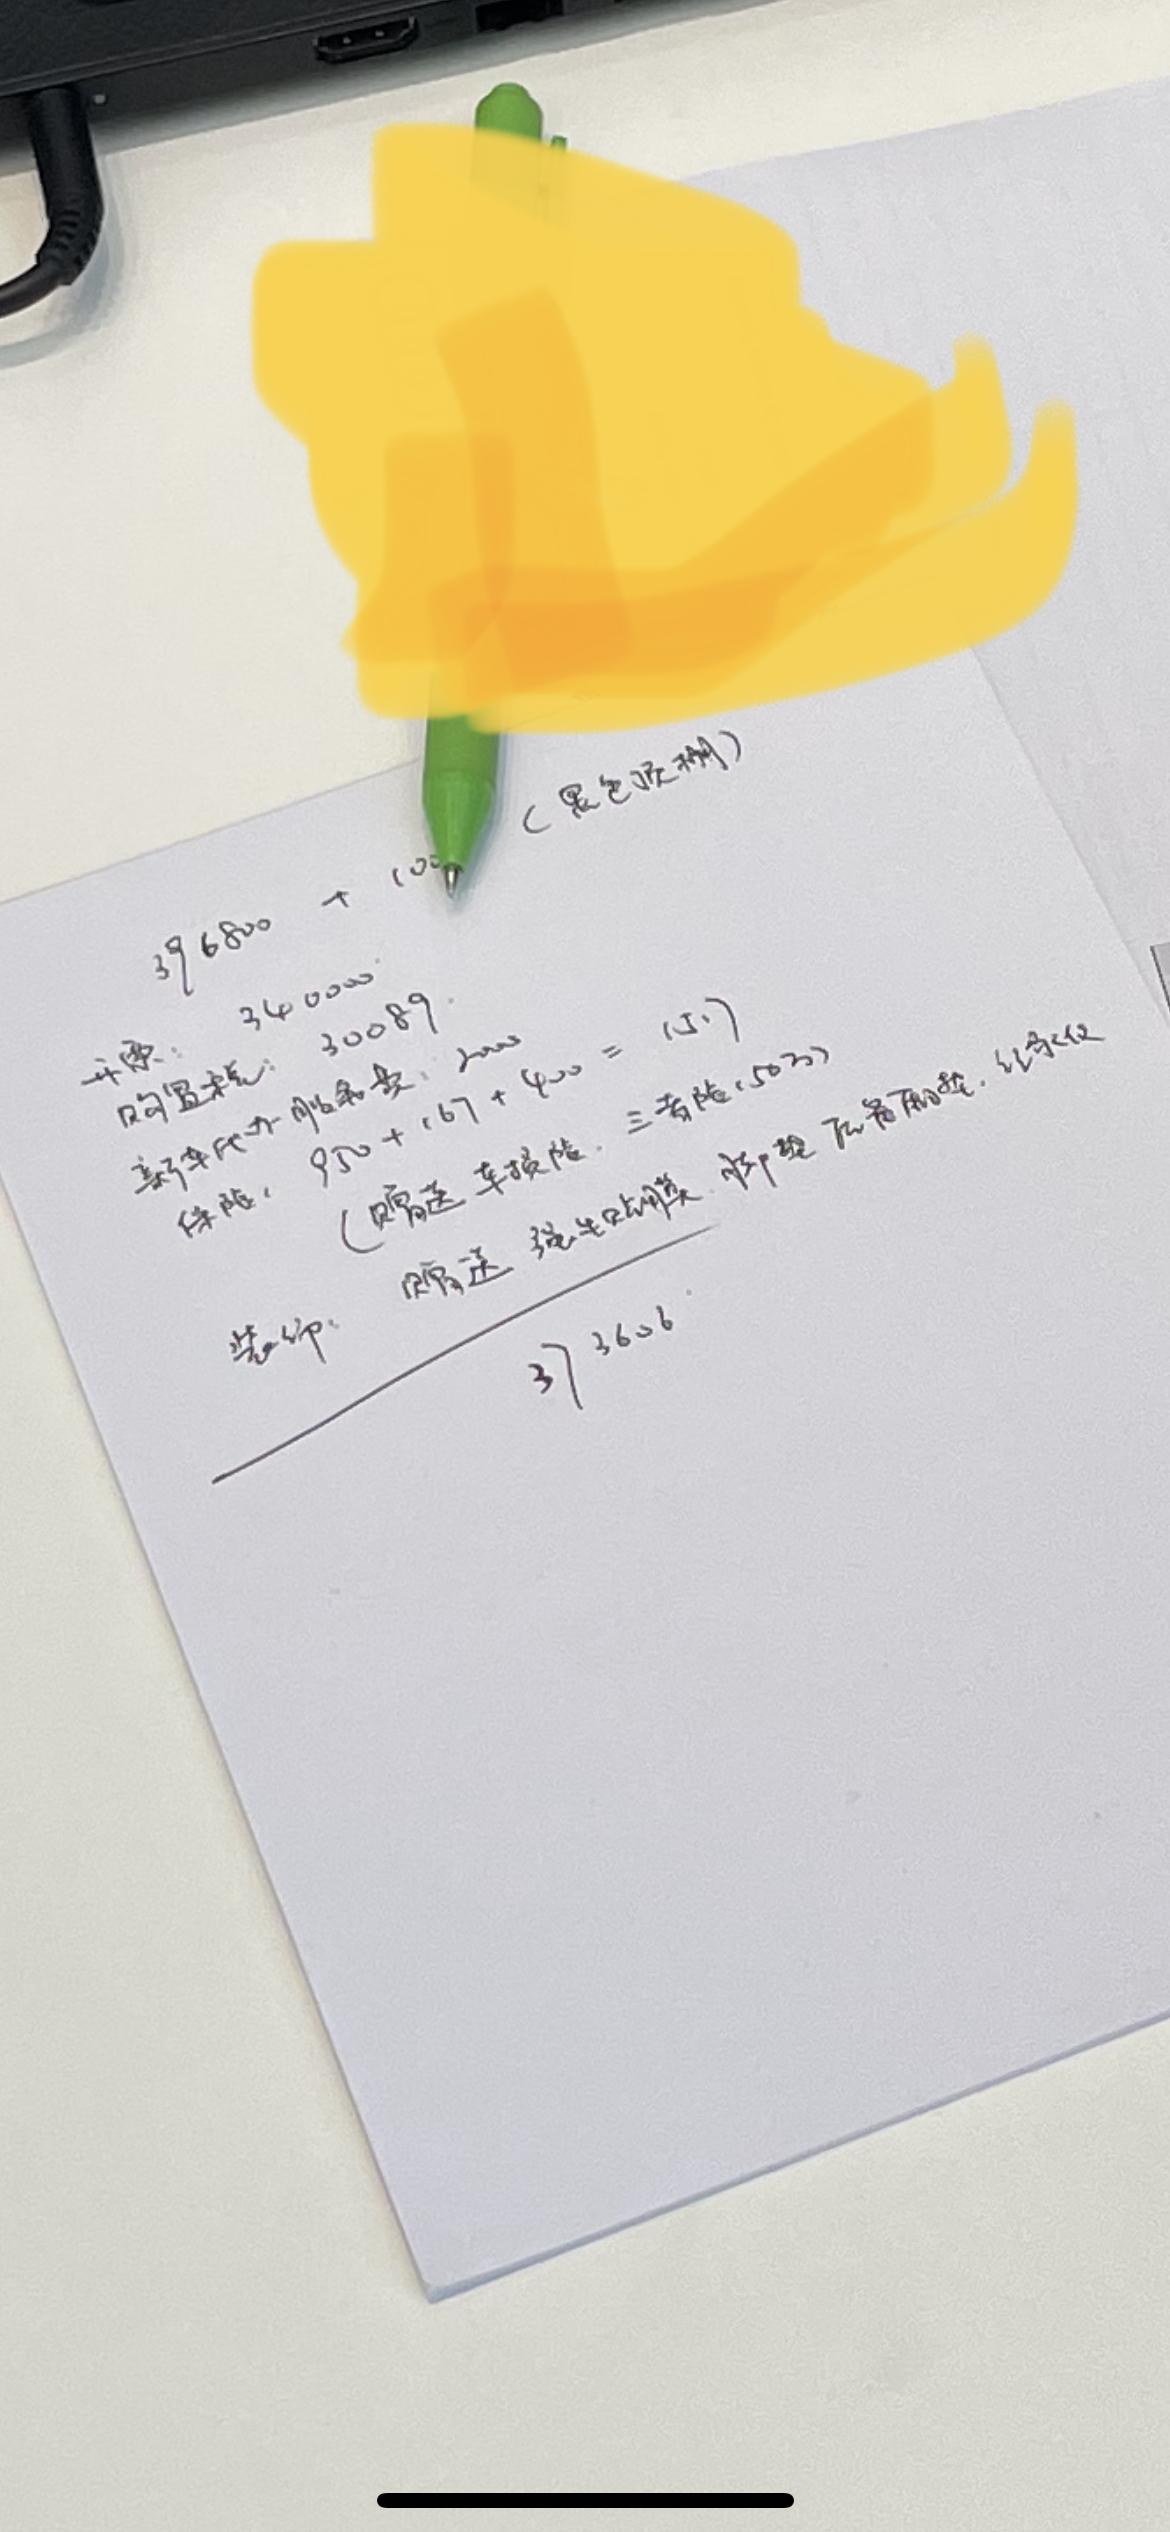 (黑色顶棚)
396800 + 100
开票: 340000
购置税: 30089.
新车代办服务费: 2000
保险: 950 + 167 + 400 = 1517
(赠送 车损险. 三者险(50万)
装饰: 赠送 贴膜. 脚垫 后备厢垫. 记录仪
373606